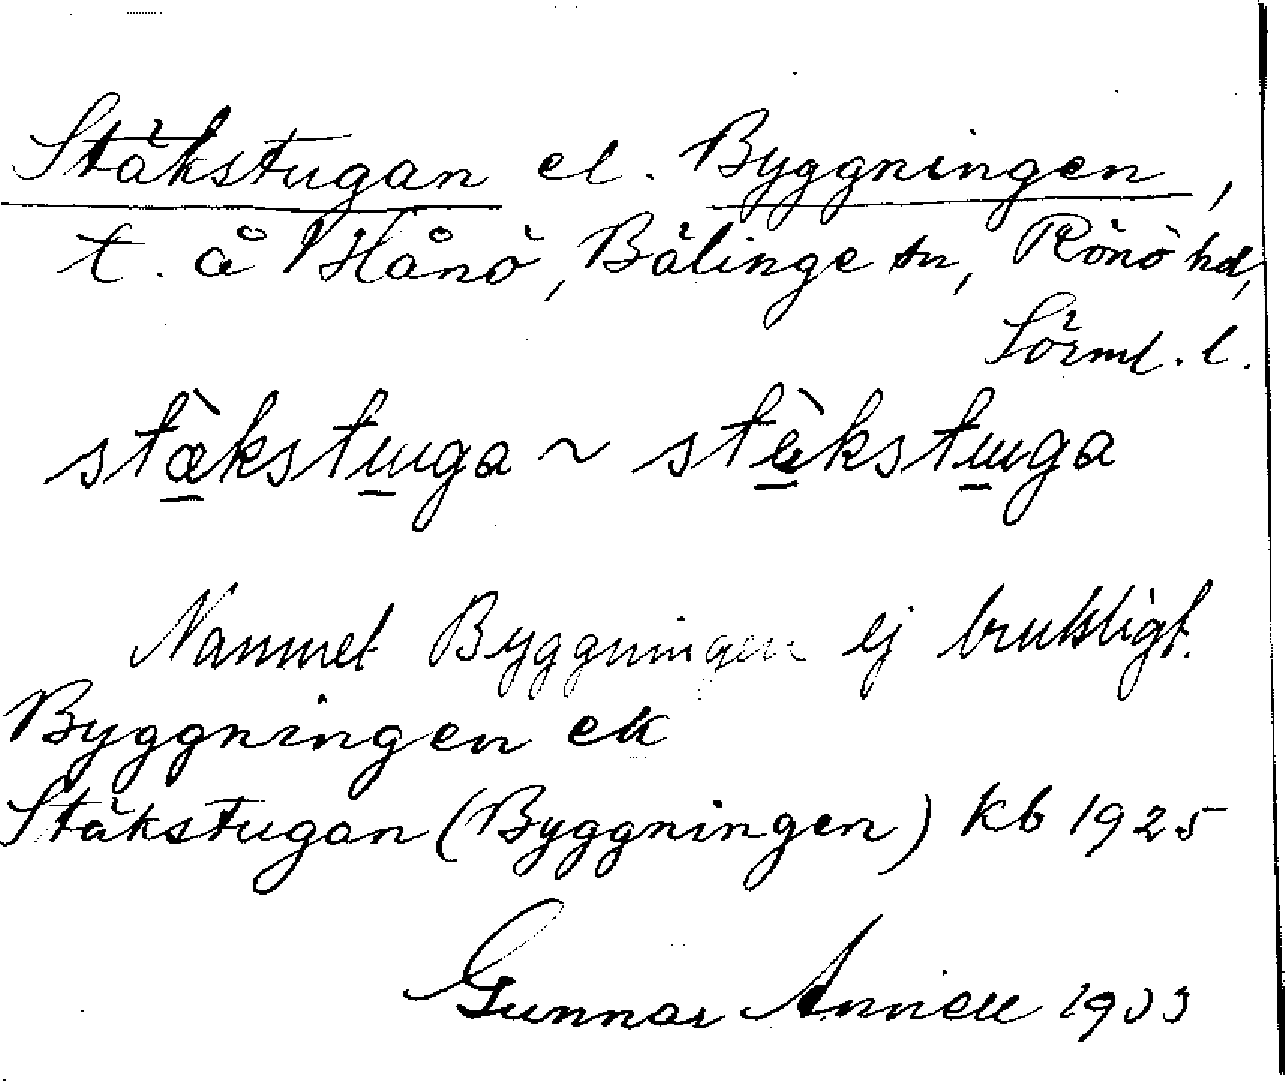 Stäkstugan el. Byggningen,
t. å Hånö, Bälinge sn, Rönö hd,
Sörml. l.
stæ̀kstuga ~ stæ̀kstuga
Namnet Byggningen ej brukligt.
Byggningen ek
Stäkstugan (Byggningen) kb 1925
Gunnar Annell 1933